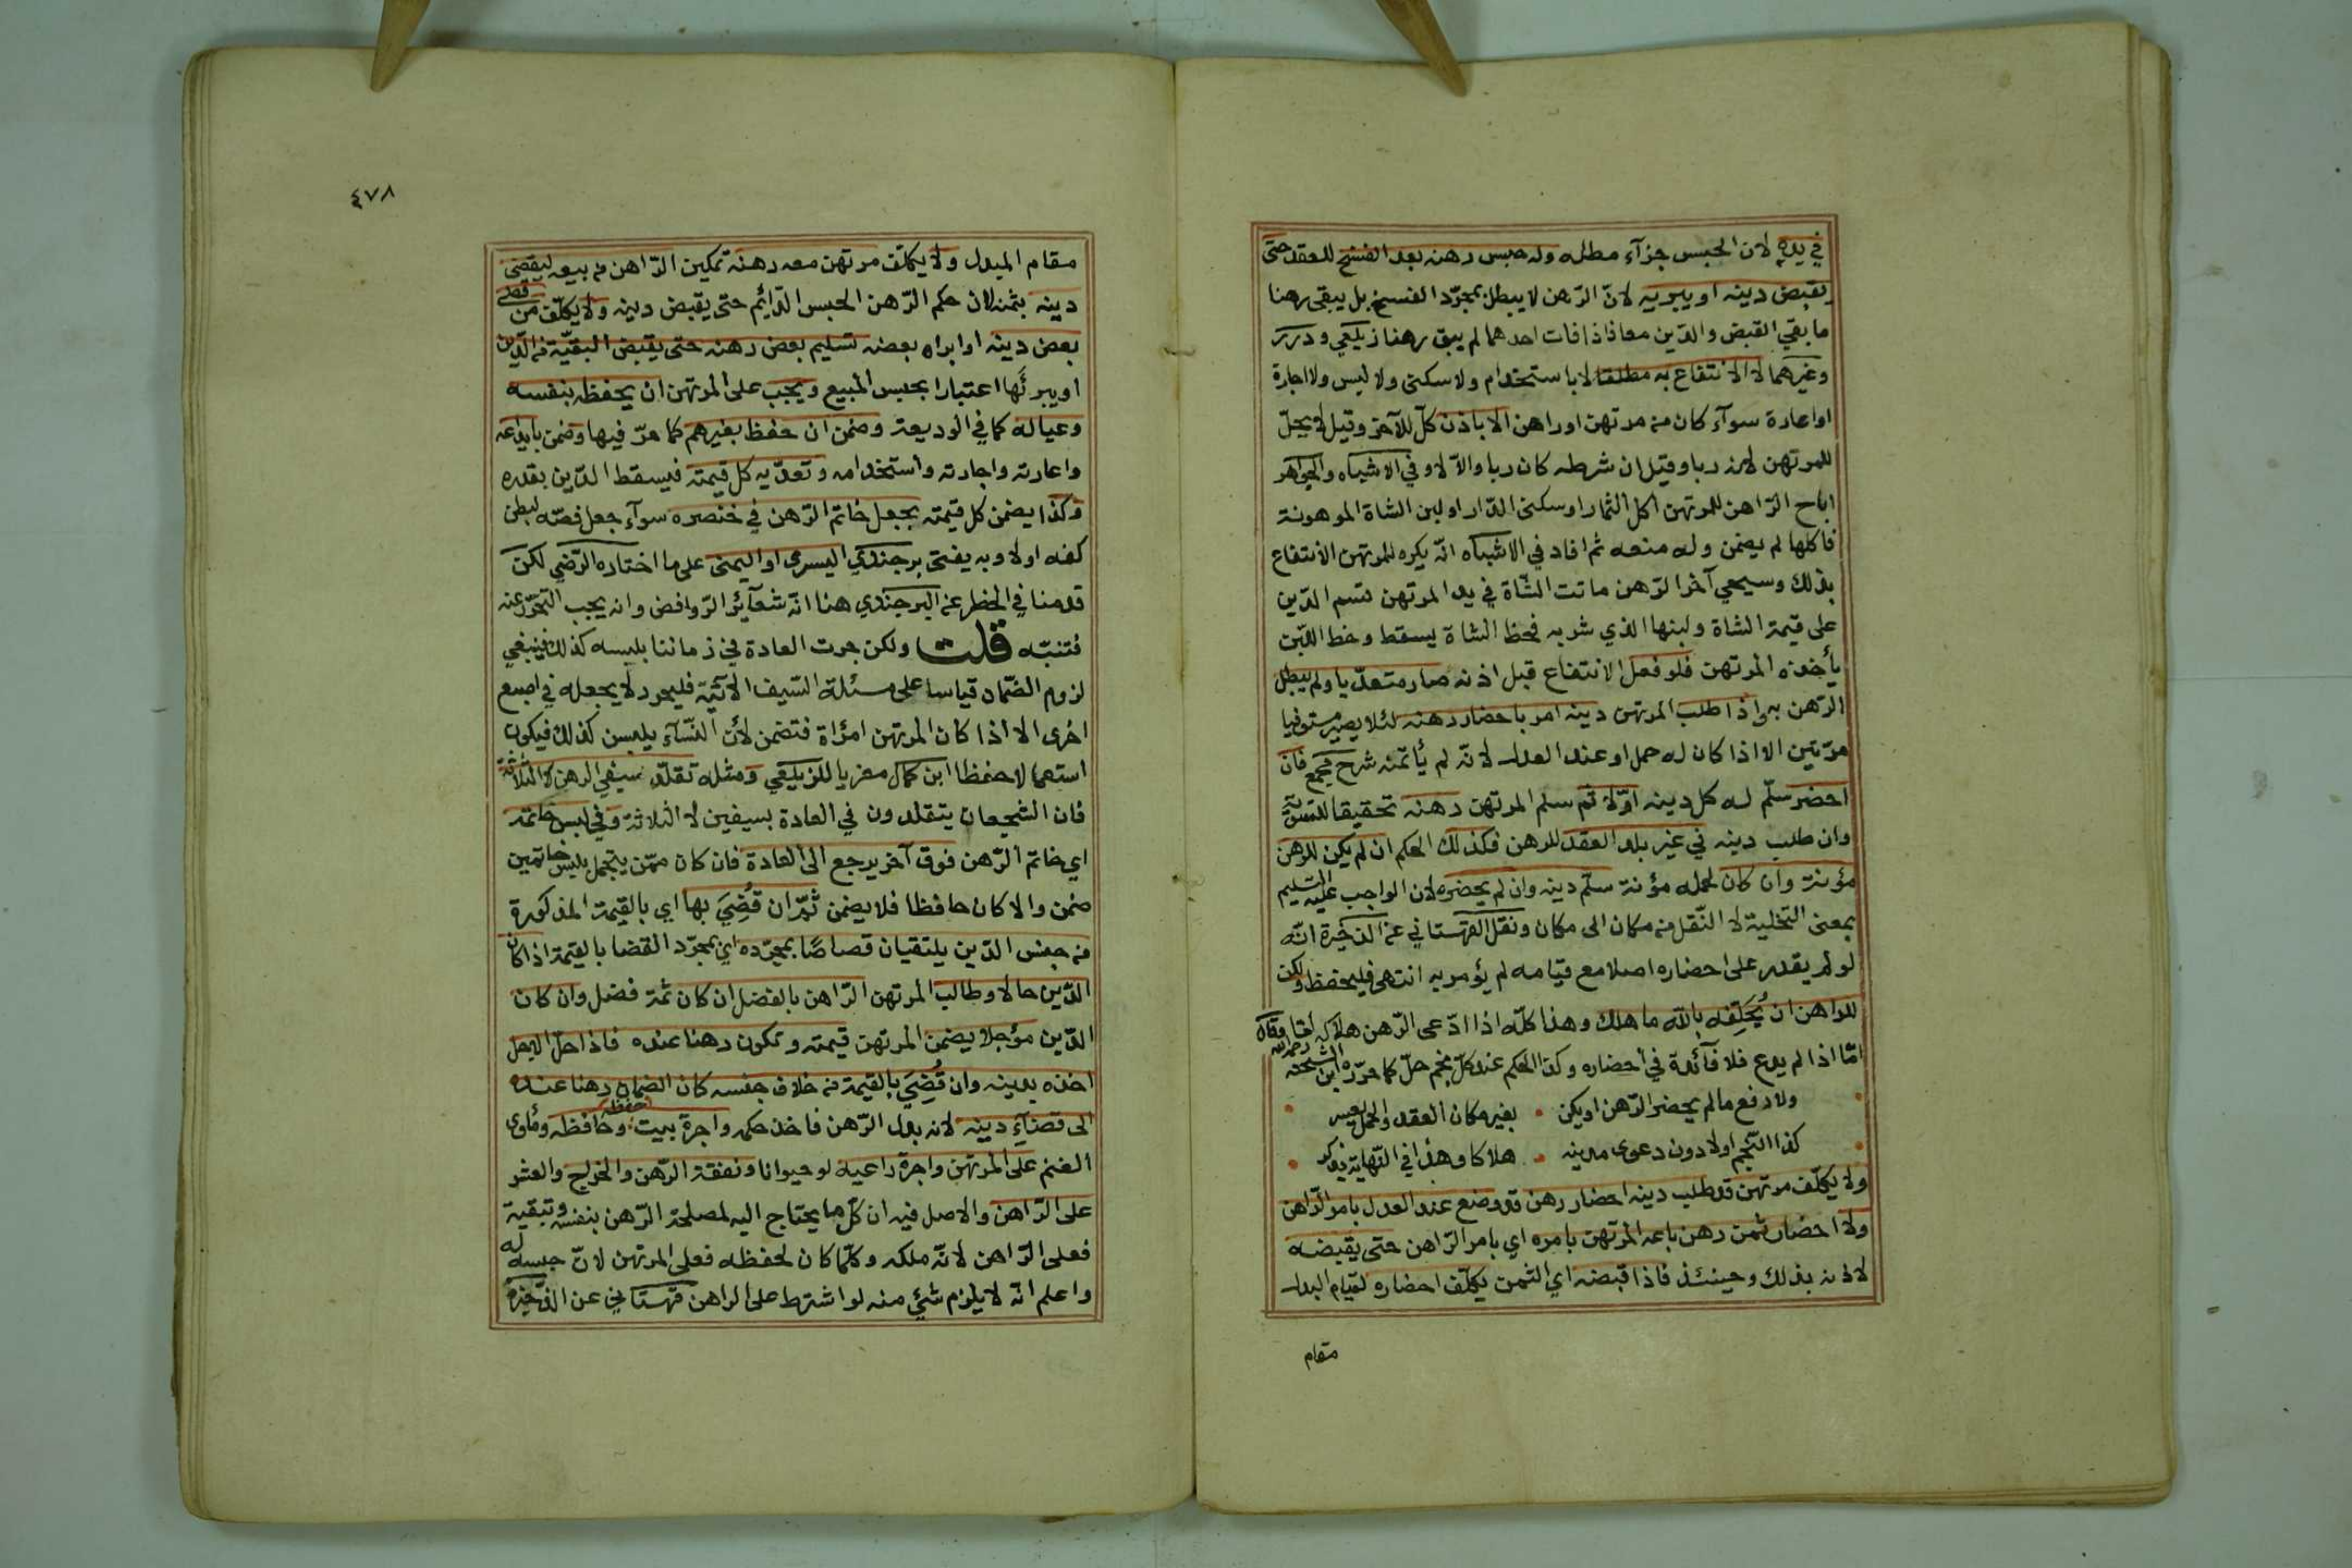 في يده لان الحبس جزآء مطله وله حبس رهنه بعد الفسخ للعقد حتى
يقبض دينه او يبريه لانّ الرّهن لا يبطل بمجرّد الفسخ بل يبقى رهنا
ما بقي القبض والدّين معا فاذا فات احدهما لم يبق رهنا زيلعي ودرر
وغيرهما لا الانتفاع به مطلقا لا باستخدام ولا سكنى ولا لبس ولا اجارة
او اعارة سوآء كان من مرتهن او راهن الا باذن كلّ للآخر وقيل لا يحلّ
للمرتهن لانه ربا وقيل ان شرطه كان ربا والاّ لا وفي الاشباه والجواهر
اباح الرّاهن للمرتهن اكل الثمار او سكنى الدّار او لبن الشاة المرهونة
فاكلها لم يضمن وله منعه ثم افاد في الاشباه انّه يكره للمرتهن الانتفاع
بذلك وسيجي آخر الرّهن ماتت الشّاة في يد المرتهن قسم الدّين
على قيمة الشاة ولبنها الذي شربه فحظ الشاة يسقط وحظ اللّبن
يأخذه المرتهن فلو فعل الانتفاع قبل اذنه صار متعدّيا ولم يبطل
الرّهن به واذا طلب المرتهن دينه امر باحضار رهنه لئلا يصير مستوفيا
مرّتين الا اذا كان له حمل او عند العدل لانّه لم يأتمنه شرح مجمع فان
احضر سلّم له كل دينه اوّلا ثم سلم المرتهن رهنه تحقيقا للتسوية
وان طلب دينه في غير بلد العقد للرهن فكذلك الحكم ان لم يكن للرهن
مؤنة وان كان لحمله مؤنة سلّم دينه وان لم يحضره لان الواجب عليه التسليم
بمعنى التخلية لا النّقل من مكان الى مكان ونقل القهستاني عن الذخيرة انّه
لو لم يقدر على احضاره اصلا مع قيامه لم يؤمر به انتهى فليحفظ ولكن
للراهن ان يُحَلِّفه بالله ما هلك وهذا كلّه اذا ادّعى الرّهن هلاكه
امّا اذا لم يدع فلا فآئدة في احضاره وكذا الحكم عند كلّ نجم حلّ كما حرّره ابن الشحنه رحمه الله
ولا دفع ما لم يحضر الرّهن او يكن • بغير مكان العقد والحمل يعسر
كذا النّجم اولا دون دعوى مدينه • هلاكا وهذا في النّهاية يذكر
ولا يكلّف مرتهن قد طلب دينه احضار رهن قد وضع عند العدل بامر الرّاهن
ولا احضار ثمن رهن باعه المرتهن بامره اي بامر الرّاهن حتى يقبضه
لاذنه بذلك وحينئذ فاذا قبضه اي الثمن يكلّف احضاره لقيام البدل
مقام
٤٧٨
مقام المبدل ولا يكلّف مرتهن معه رهنه تمكين الرّاهن من بيعه ليقضي
دينه بثمنه لان حكم الرّهن الحبس الدّائم حتى يقبض دينه ولا يكلّف من قضى
بعض دينه او ابراه بعضه تسليم بعض رهنه حتى يقبض البقيّة من الدّين
او يبرئها اعتبارا بحبس المبيع ويجب على المرتهن ان يحفظه بنفسه
وعياله كما في الوديعة وضمن ان حفظ بغيرهم كما مرّ فيها وضمن بايداعه
واعارته واجارته واستخدامه وتعدّيه كل قيمته فيسقط الدّين بقدره
وكذا يضمن كل قيمته بجعل خاتم الرّهن في خنصره سوآء جعل فصّه لبطن
كفه اولا وبه يفتى برجندي اليسرى او اليمنى على ما اختاره الرّضي لكن
قدمنا في الحظر عن البرجندي هنا انّه شعآئر الرّوافض وانه يجب التحرّز عنه
فتنبّه قلت ولكن جرت العادة في زماننا بلبسه كذلك فينبغي
لزوم الضّمان قياسا على مسئلة السّيف الآتية فليحرر لا يجعله في اصبع
اخرى الا اذا كان المرتهن امرأة فتضمن لأن النّسآء يلبسن كذلك فيكون
استعمالا لا حفظا ابن كمال معزيا للزيلعي ومثله تقلّد سيفي الرهن لا الثلاثة
فان الشجعان يتقلدون في العادة بسيفين لا الثلاثة وفي لبس خاتمه
اي خاتم الرّهن فوق آخر يرجع الى العادة فان كان ممّن يتجمل بلبس خاتمين
ضمن والا كان حافظا فلا يضمن ثمّ ان قُضِيَ بها اي بالقيمة المذكورة
من جنس الدّين يلتقيان قصاصًا بمجرّده اي بمجرّد القضا بالقيمة اذا كان
الدّين حالا وطالب المرتهن الرّاهن بالفضل ان كان ثمّة فضل وان كان
الدّين مؤجلا يضمن المرتهن قيمته وتكون رهنا عنده فاذا حلّ الاجل
اخذه بدينه وان قُضِيَ بالقيمة من خلاف جنسه كان الضمان رهنا عنده
الى قضآءِ دينه لانه بدل الرّهن فاخذ حكمه واجرة بيت حفظه وحافظه ومأوى
الغنم على المرتهن واجرة راعيه لو حيوانا ونفقة الرّهن والخراج والعشر
على الرّاهن والاصل فيه ان كلّ ما يحتاج اليه لمصلحة الرّهن بنفسه وتبقيته
فعلى الرّاهن لانّه ملكه وكلّما كان لحفظه فعلى المرتهن لانّ حبسه له
واعلم انّه لا يلزم شيئ منه لو اشترط على الراهن قهستاني عن الذّخيره